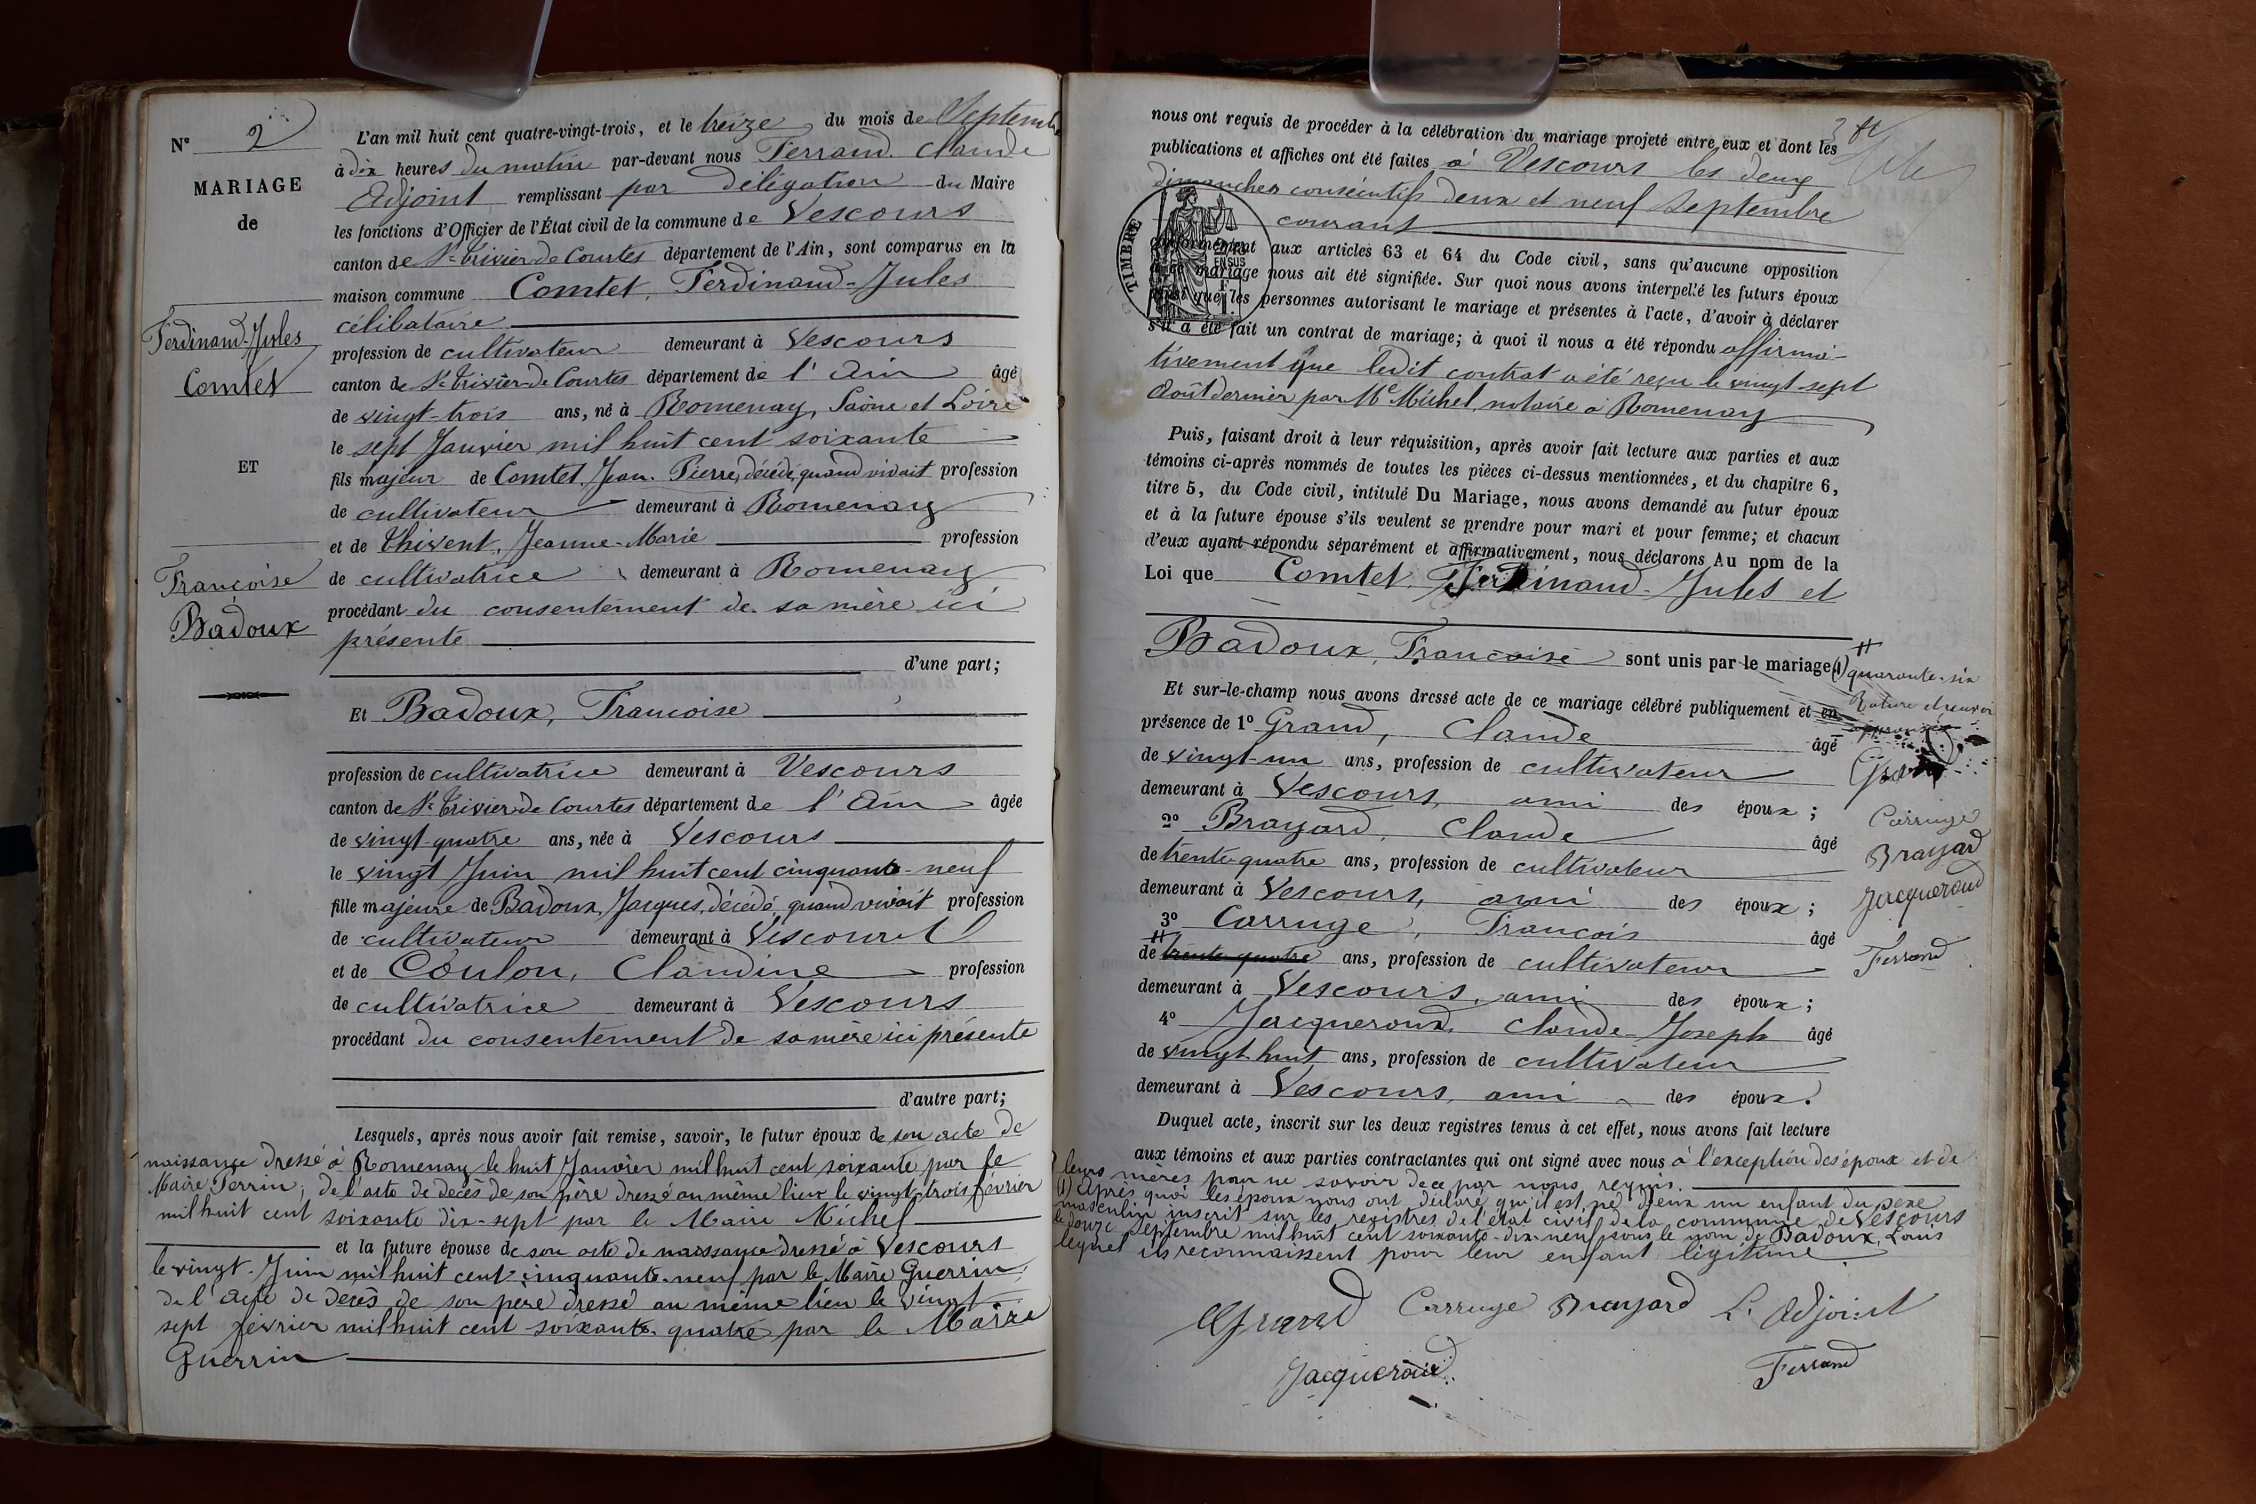 N° 2
MARIAGE
de
Ferdinand-Jules
Comtet
ET
Françoise
Badoux
L'an mil huit cent quatre-vingt-trois, et le treize du mois de Septembre
à dix heures du matin par-devant nous Ferrand Claude
Adjoint remplissant par délégation du Maire
les fonctions d'Officier de l'État civil de la commune de Vescours
canton de St Trivier de Courtes département de l'Ain, sont comparus en la
maison commune Comtet, Ferdinand-Jules
célibataire
profession de cultivateur demeurant à Vescours
canton de St Trivier de Courtes département de l'Ain âgé
de vingt-trois ans, né à Romenay, Saône et Loire
le sept Janvier mil huit cent soixante
fils majeur de Comtet, Jean-Pierre, décédé, quand vivait profession
de cultivateur demeurant à Romenay
et de Thivent, Jeanne-Marie profession
de cultivatrice demeurant à Romenay
procédant du consentement de sa mère ici
présente
d'une part;
Et Badoux, Francoise
profession de cultivatrice demeurant à Vescours
canton de St Trivier de Courtes département de l'Ain âgée
de vingt-quatre ans, née à Vescours
le vingt Juin mil huit cent cinquante-neuf
fille majeure de Badoux, Jacques, décédé, quand vivait profession
de cultivateur demeurant à Vescours
et de Coulon, Claudine profession
de cultivatrice demeurant à Vescours
procédant du consentement de sa mère ici présente
d'autre part;
Lesquels, après nous avoir fait remise, savoir, le futur époux de son acte de
naissance dressé à Romenay le huit Janvier mil huit cent soixante par le
Maire Perrin; de l'acte de décès de son père dressé au même lieu le vingt-trois février
mil huit cent soixante dix-sept par le Maire Michel
et la future épouse de son acte de naissance dressé à Vescours
le vingt-Juin mil huit cent cinquante-neuf par le Maire Guerrin;
de l'acte de décès de son père dressé au même lieu le vingt
sept février mil huit cent soixante-quatre par le Maire
Guerrin
nous ont requis de procéder à la célébration du mariage projeté entre eux et dont les
publications et affiches ont été faites à Vescours les deux
dimanches consécutifs deux et neuf Septembre
courant
TIMBRE
conformément aux articles 63 et 64 du Code civil, sans qu'aucune opposition
à ce mariage nous ait été signifiée. Sur quoi nous avons interpellé les futurs époux
ainsi que les personnes autorisant le mariage et présentes à l'acte, d'avoir à déclarer
s'il a été fait un contrat de mariage; à quoi il nous a été répondu affirma-
tivement que ledit contrat a été reçu le vingt-sept
Août dernier par Me Michel, notaire à Romenay
Puis, faisant droit à leur réquisition, après avoir fait lecture aux parties et aux
témoins ci-après nommés de toutes les pièces ci-dessus mentionnées, et du chapitre 6,
titre 5, du Code civil, intitulé Du Mariage, nous avons demandé au futur époux
et à la future épouse s'ils veulent se prendre pour mari et pour femme; et chacun
d'eux ayant répondu séparément et affirmativement, nous déclarons Au nom de la
Loi que Comtet, Ferdinand-Jules et
Badoux, Françoise sont unis par le mariage (1)
Et sur-le-champ nous avons dressé acte de ce mariage célébré publiquement et en
présence de 1° Grand, Claude âgé
de vingt-un ans, profession de cultivateur
demeurant à Vescours, ami des époux;
2° Brayard, Claude âgé
de trente-quatre ans, profession de cultivateur
demeurant à Vescours, ami des époux;
3° Carruge, François âgé
de trente-quatre ans, profession de cultivateur
demeurant à Vescours, ami des époux;
4° Jacqueroud, Claude-Joseph âgé
de vingt-huit ans, profession de cultivateur
demeurant à Vescours, ami des époux.
Duquel acte, inscrit sur les deux registres tenus à cet effet, nous avons fait lecture
aux témoins et aux parties contractantes qui ont signé avec nous à l'exception des époux et de
leurs mères pour ne savoir de ce par nous requis.
(1) Après quoi les époux nous ont déclaré qu'il est né d'eux un enfant du sexe
masculin inscrit sur les registres de l'état civil de la commune de Vescours
le douze Septembre mil huit cent soixante-dix-neuf sous le nom de Badoux, Louis
lequel ils reconnaissent pour leur enfant légitime.
quarante-six
Rature et renvoi
approuvés
Carruge
Brayard
Jacqueroud
Ferrand
CGrand Carruge Brayard L'Adjoint
Jacqueroud Ferrand